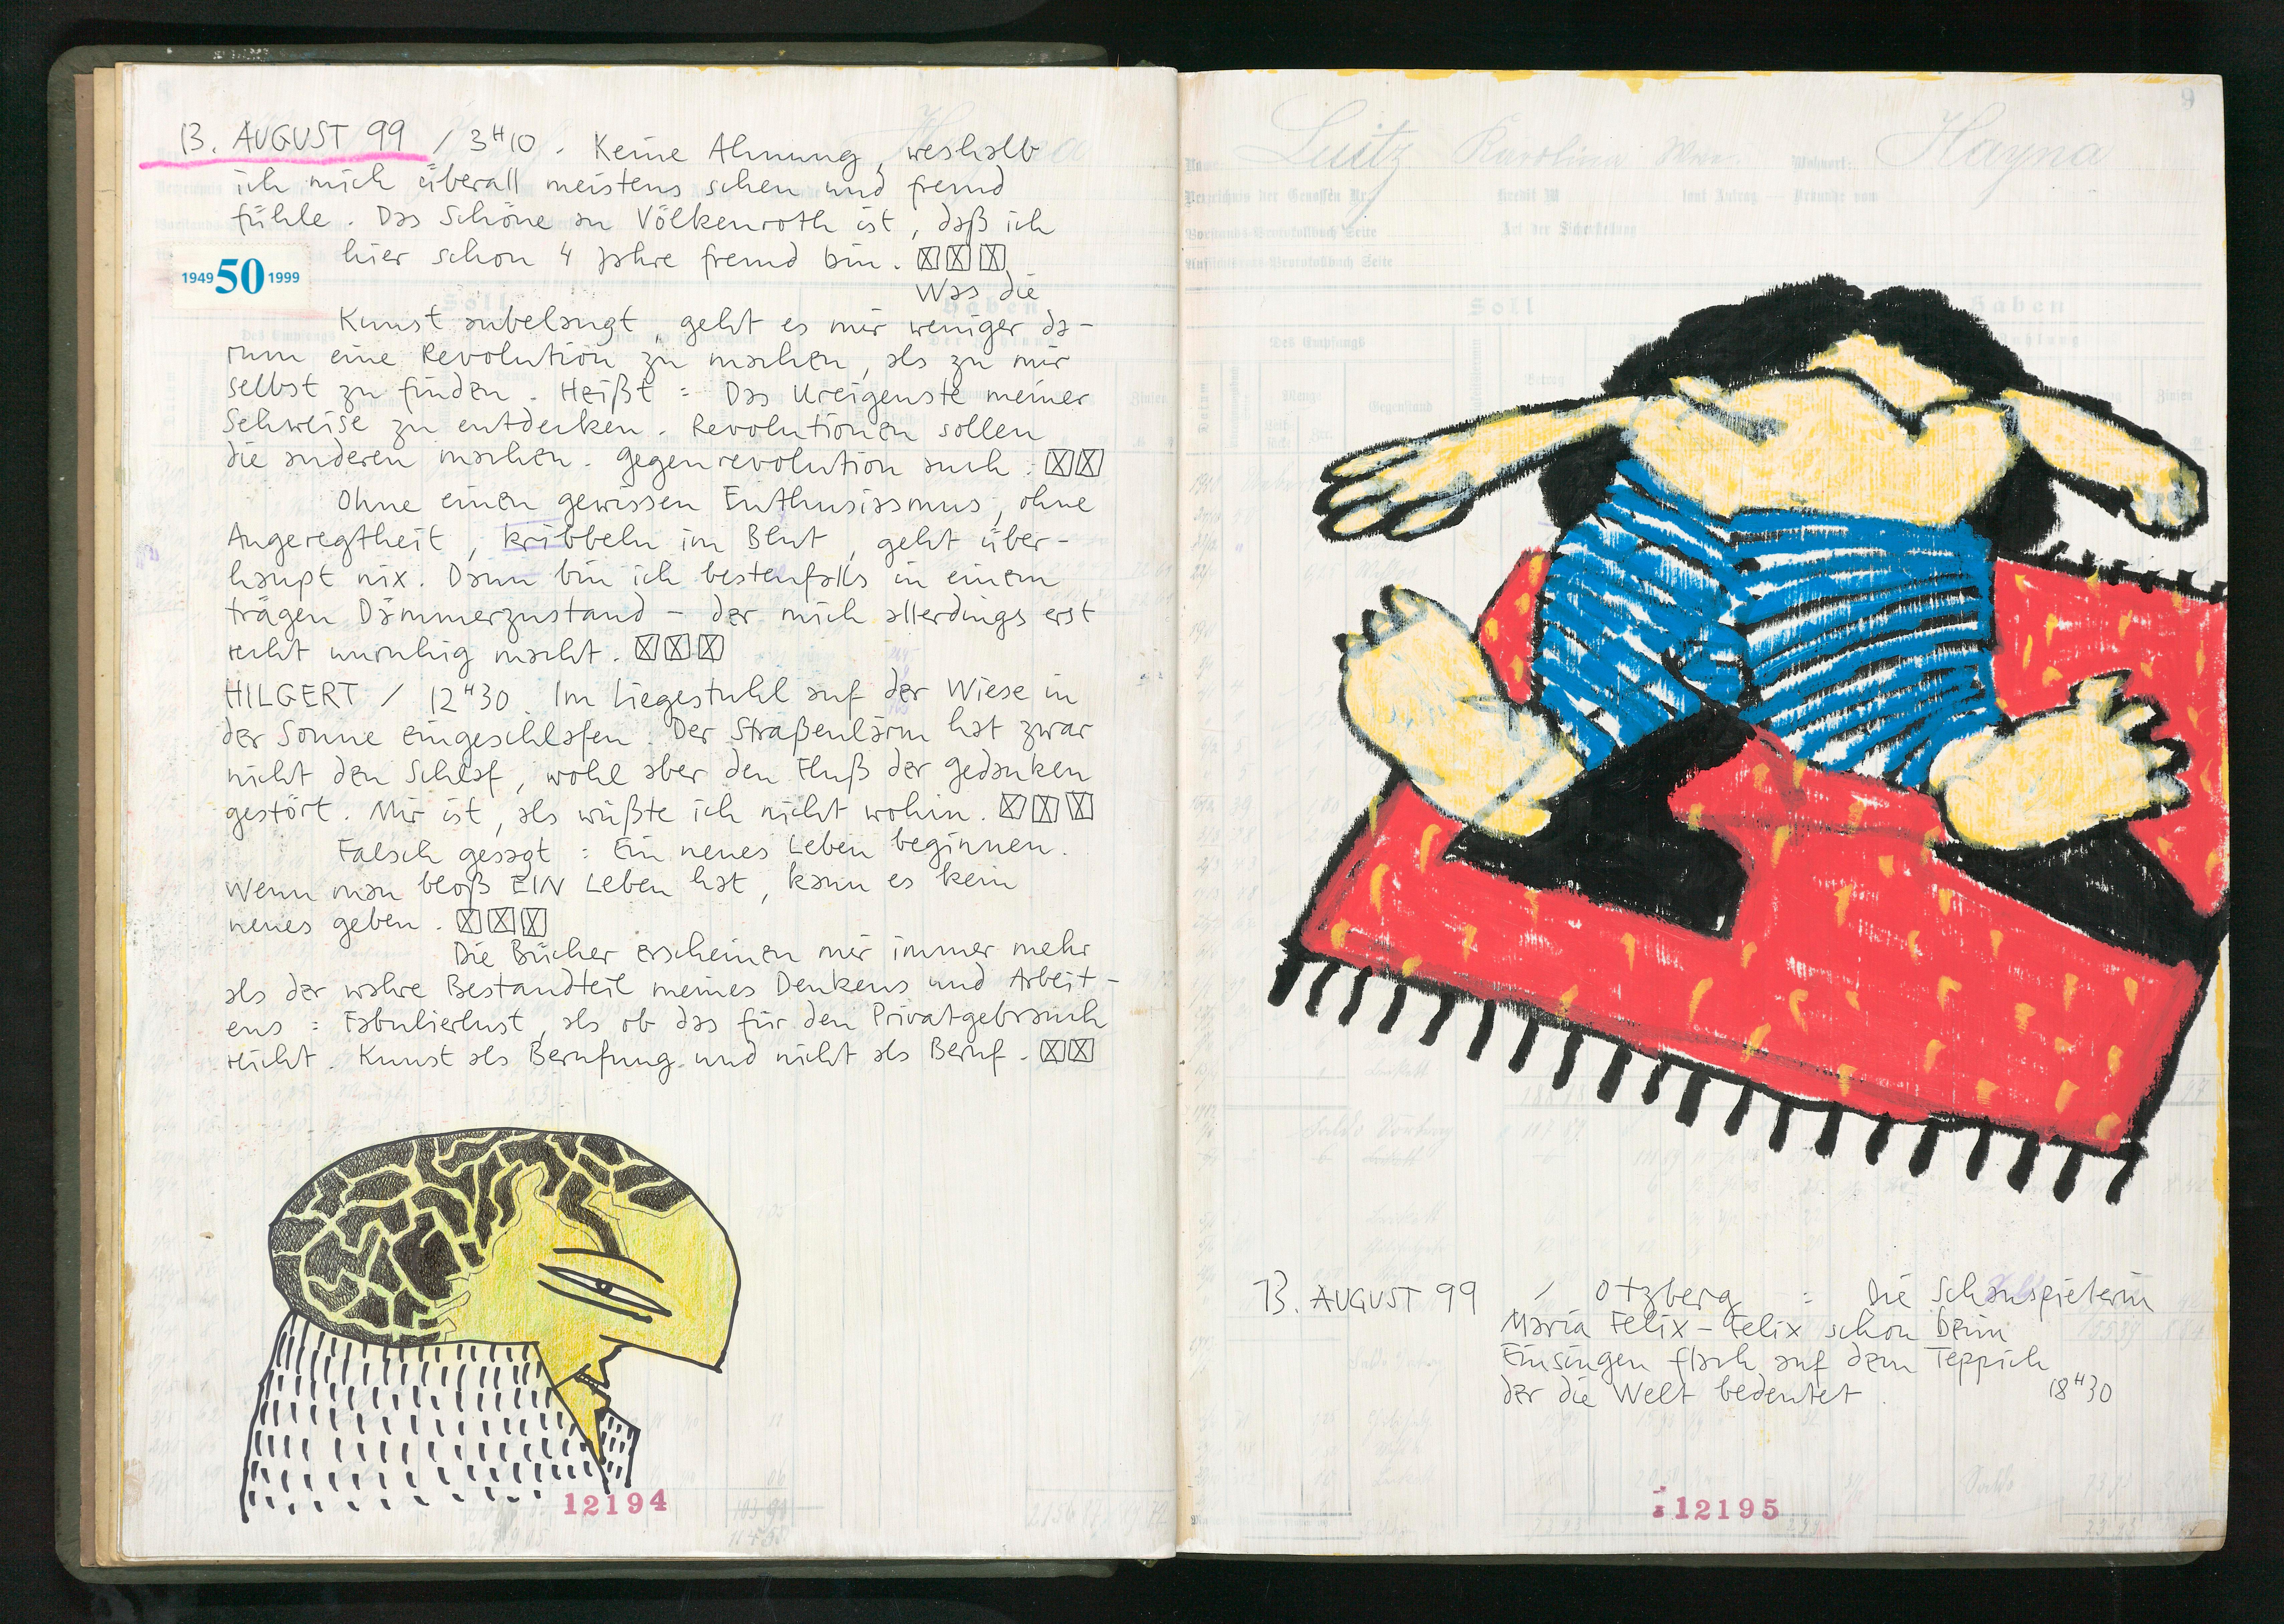 13. AUGUST 99 / 3H10. Keine Ahnung, weshalb
ich mich überall meistens scheu und fremd
fühle. Das Schöne an Völkenroth ist, daß ich
hier schon 4 Jahre fremd bin. ☒☒☒
1949 50 1999
Was die
Kunst anbelangt, geht es mir weniger da-
rum eine Revolution zu machen, als zu mir
selbst zu finden. Heißt: Das Ureigenste meiner
Sehweise zu entdecken. Revolutionen sollen
die anderen machen. Gegenrevolution auch. ☒☒
Ohne einen gewissen Enthusiasmus, ohne
Angeregtheit, kribbeln im Blut, geht über-
haupt nix. Dann bin ich bestenfalls in einem
trägen Dämmerzustand - der mich allerdings erst
recht unruhig macht. ☒☒☒
HILGERT / 12H30. Im Liegestuhl auf der Wiese in
der Sonne eingeschlafen. Der Straßenlärm hat zwar
nicht den Schlaf, wohl aber den Fluß der Gedanken
gestört. Mir ist, als wüßte ich nicht wohin. ☒☒☒
Falsch gesagt: Ein neues Leben beginnen.
Wenn man bloß EIN Leben hat, kann es kein
neues geben. ☒☒☒
Die Bücher erscheinen mir immer mehr
als der wahre Bestandteil meines Denkens und Arbeit-
ens: Fabulierlust, als ob das für den Privatgebrauch
reicht. Kunst als Berufung und nicht als Beruf. ☒☒
12194
9
Luitz Karolina Wwe. Wohnort: Hayna
Verzeichnis der Genossen Nr.
Vorstands-Protokollbuch Seite
Aufsichtsrats-Protokollbuch Seite
Soll Haben
13. AUGUST 99 / Otzberg : Die Schauspielerin
Maria Felix-Felix schon beim
Einsingen flach auf dem Teppich
der die Welt bedeutet. 18H30
12195